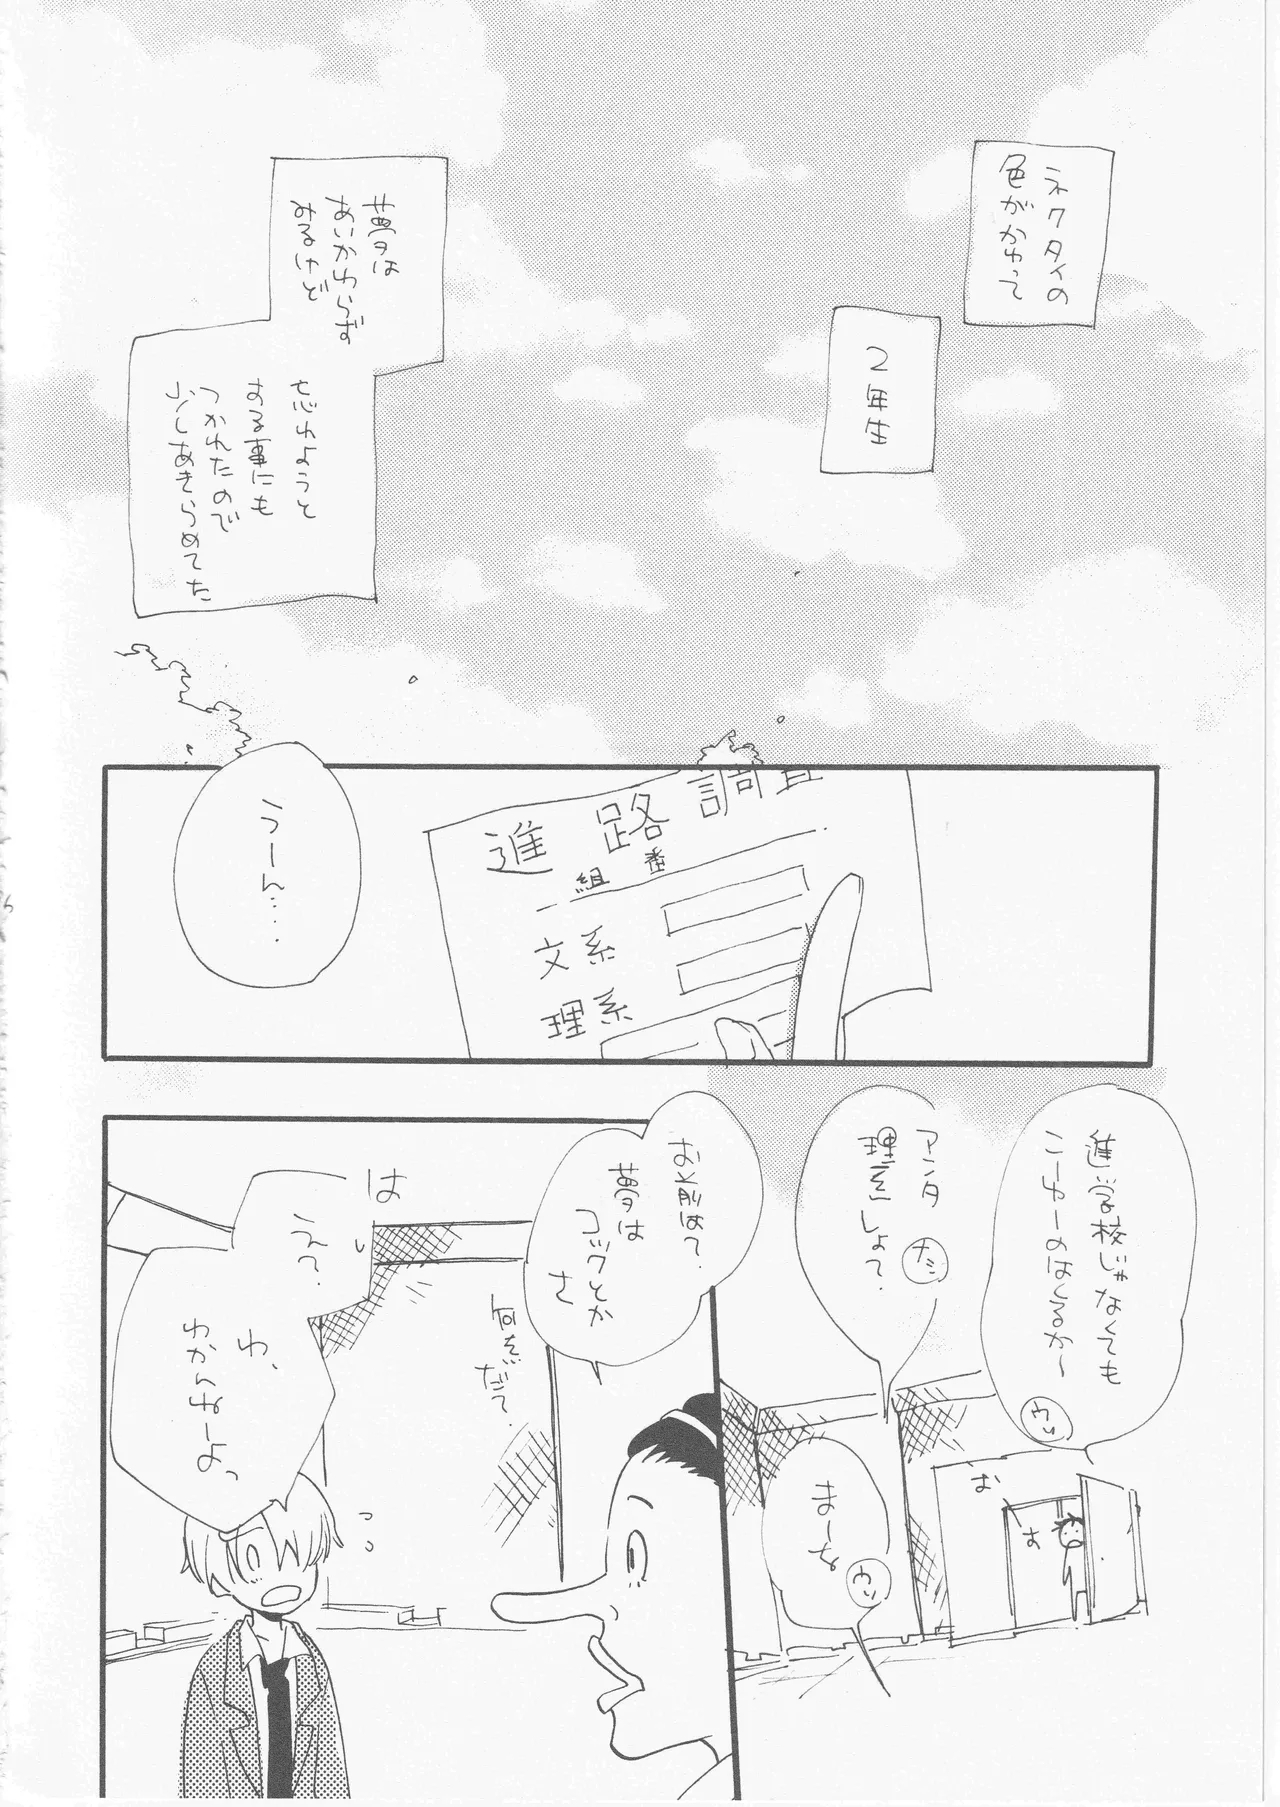 ネクタイの
色がかわって
2年生
夢は
あいかわらず
みるけど
忘れようと
する事にも
つかれたので
少しあきらめてた
進路調査
組 番
文系
理系
うーん…
進学校じゃなくても
こーゆーのはくるか〜
ウソ
アンタ
理系しょ?
ナミ
まーな
ウソ
おす
お前は?
夢は
コックとか
さ
何系だて?
は
えっ?
わ、
わかんねーよっ